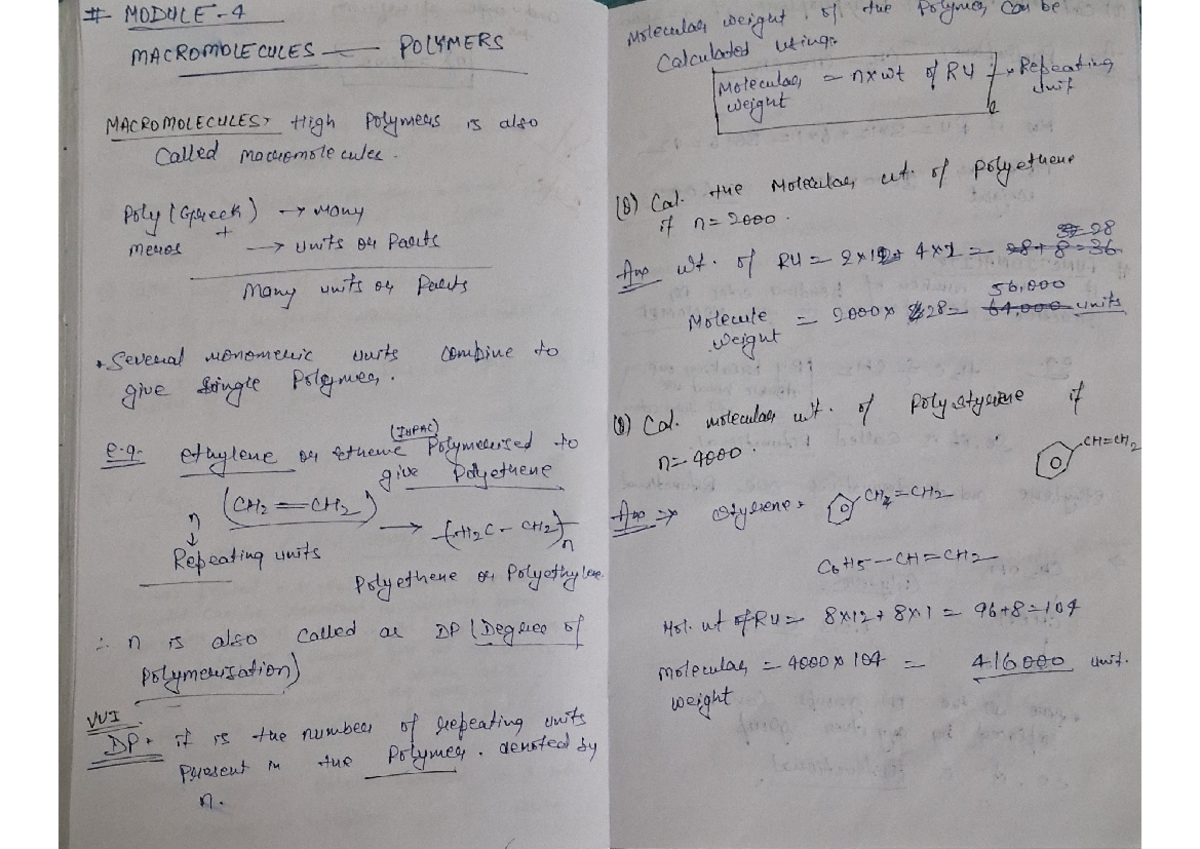 # MODULE-4
MACROMOLECULES — POLYMERS
MACROMOLECULES→ High Polymers is also
Called macromolecules.
Poly (Greek) → Many
+
meros → units or Parts
Many units or Parts
• Several monomeric units combine to
give single Polymer.
(IUPAC)
e.g. ethylene or ethene Polymerised to
give Polyethene
n (CH2=CH2) → -(H2C-CH2)-n
↓
Repeating units
Polyethene or Polyethylene
∴ n is also called as DP (Degree of
Polymerisation)
VVI
DP→ it is the number of repeating units
Present in the Polymer. denoted by
n.
Molecular weight of the Polymer can be
Calculated using:
Molecular weight = n x wt of RU → Repeating unit
(Q) Cal. the Molecular wt. of Polyethene
if n=2000.
28
Ans wt. of RU = 2x12+ 4x1 = 28+8=36
56,000
Molecule weight = 2000x 28= 64,000 units
(Q) Cal. molecular wt. of Polystyrene if
n=4000.
CH=CH2
Ans ⇒ Styrene→ CH=CH2
C6H5-CH=CH2
Mol. wt of RU = 8x12+8x1 = 96+8=104
Molecular weight = 4000x104 = 416000 unit.